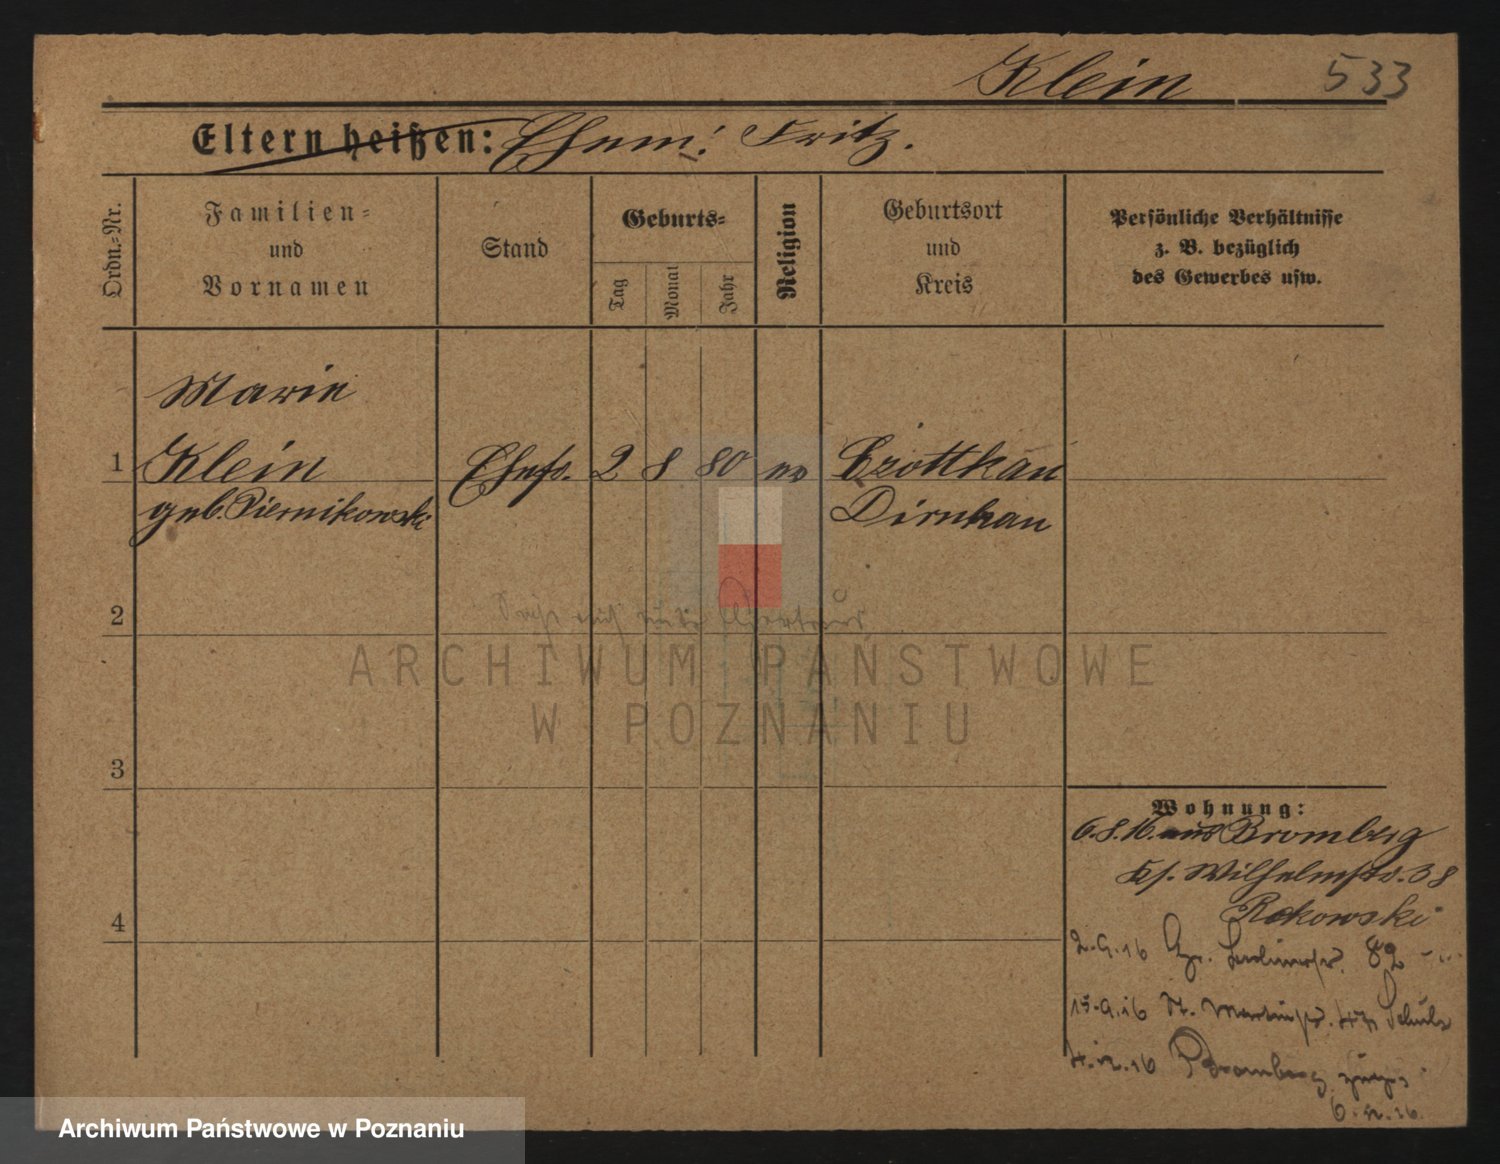 Klein 533
Eltern heißen: Ehem: Fritz.
Ordn.-Nr.
Familien-
und
Vornamen
Stand
Geburts-
Tag
Monat
Jahr
Religion
Geburtsort
und
Kreis
Persönliche Verhältnisse
z. B. bezüglich
des Gewerbes usw.
Marie
1 Klein Ehefr. 2 8 80 ev Czottkau
geb. Piernikowski Dirschau
2
3
4
Wohnung:
6.8.16. aus Bromberg
Wilhelmstr. 38
Rakowski
2.9.16 Gr. 82
15.9.16 St. Martinstr. Schulz
4.12.16 Bromberg
6.12.16.
ARCHIWUM PAŃSTWOWE
W POZNANIU
Archiwum Państwowe w Poznaniu